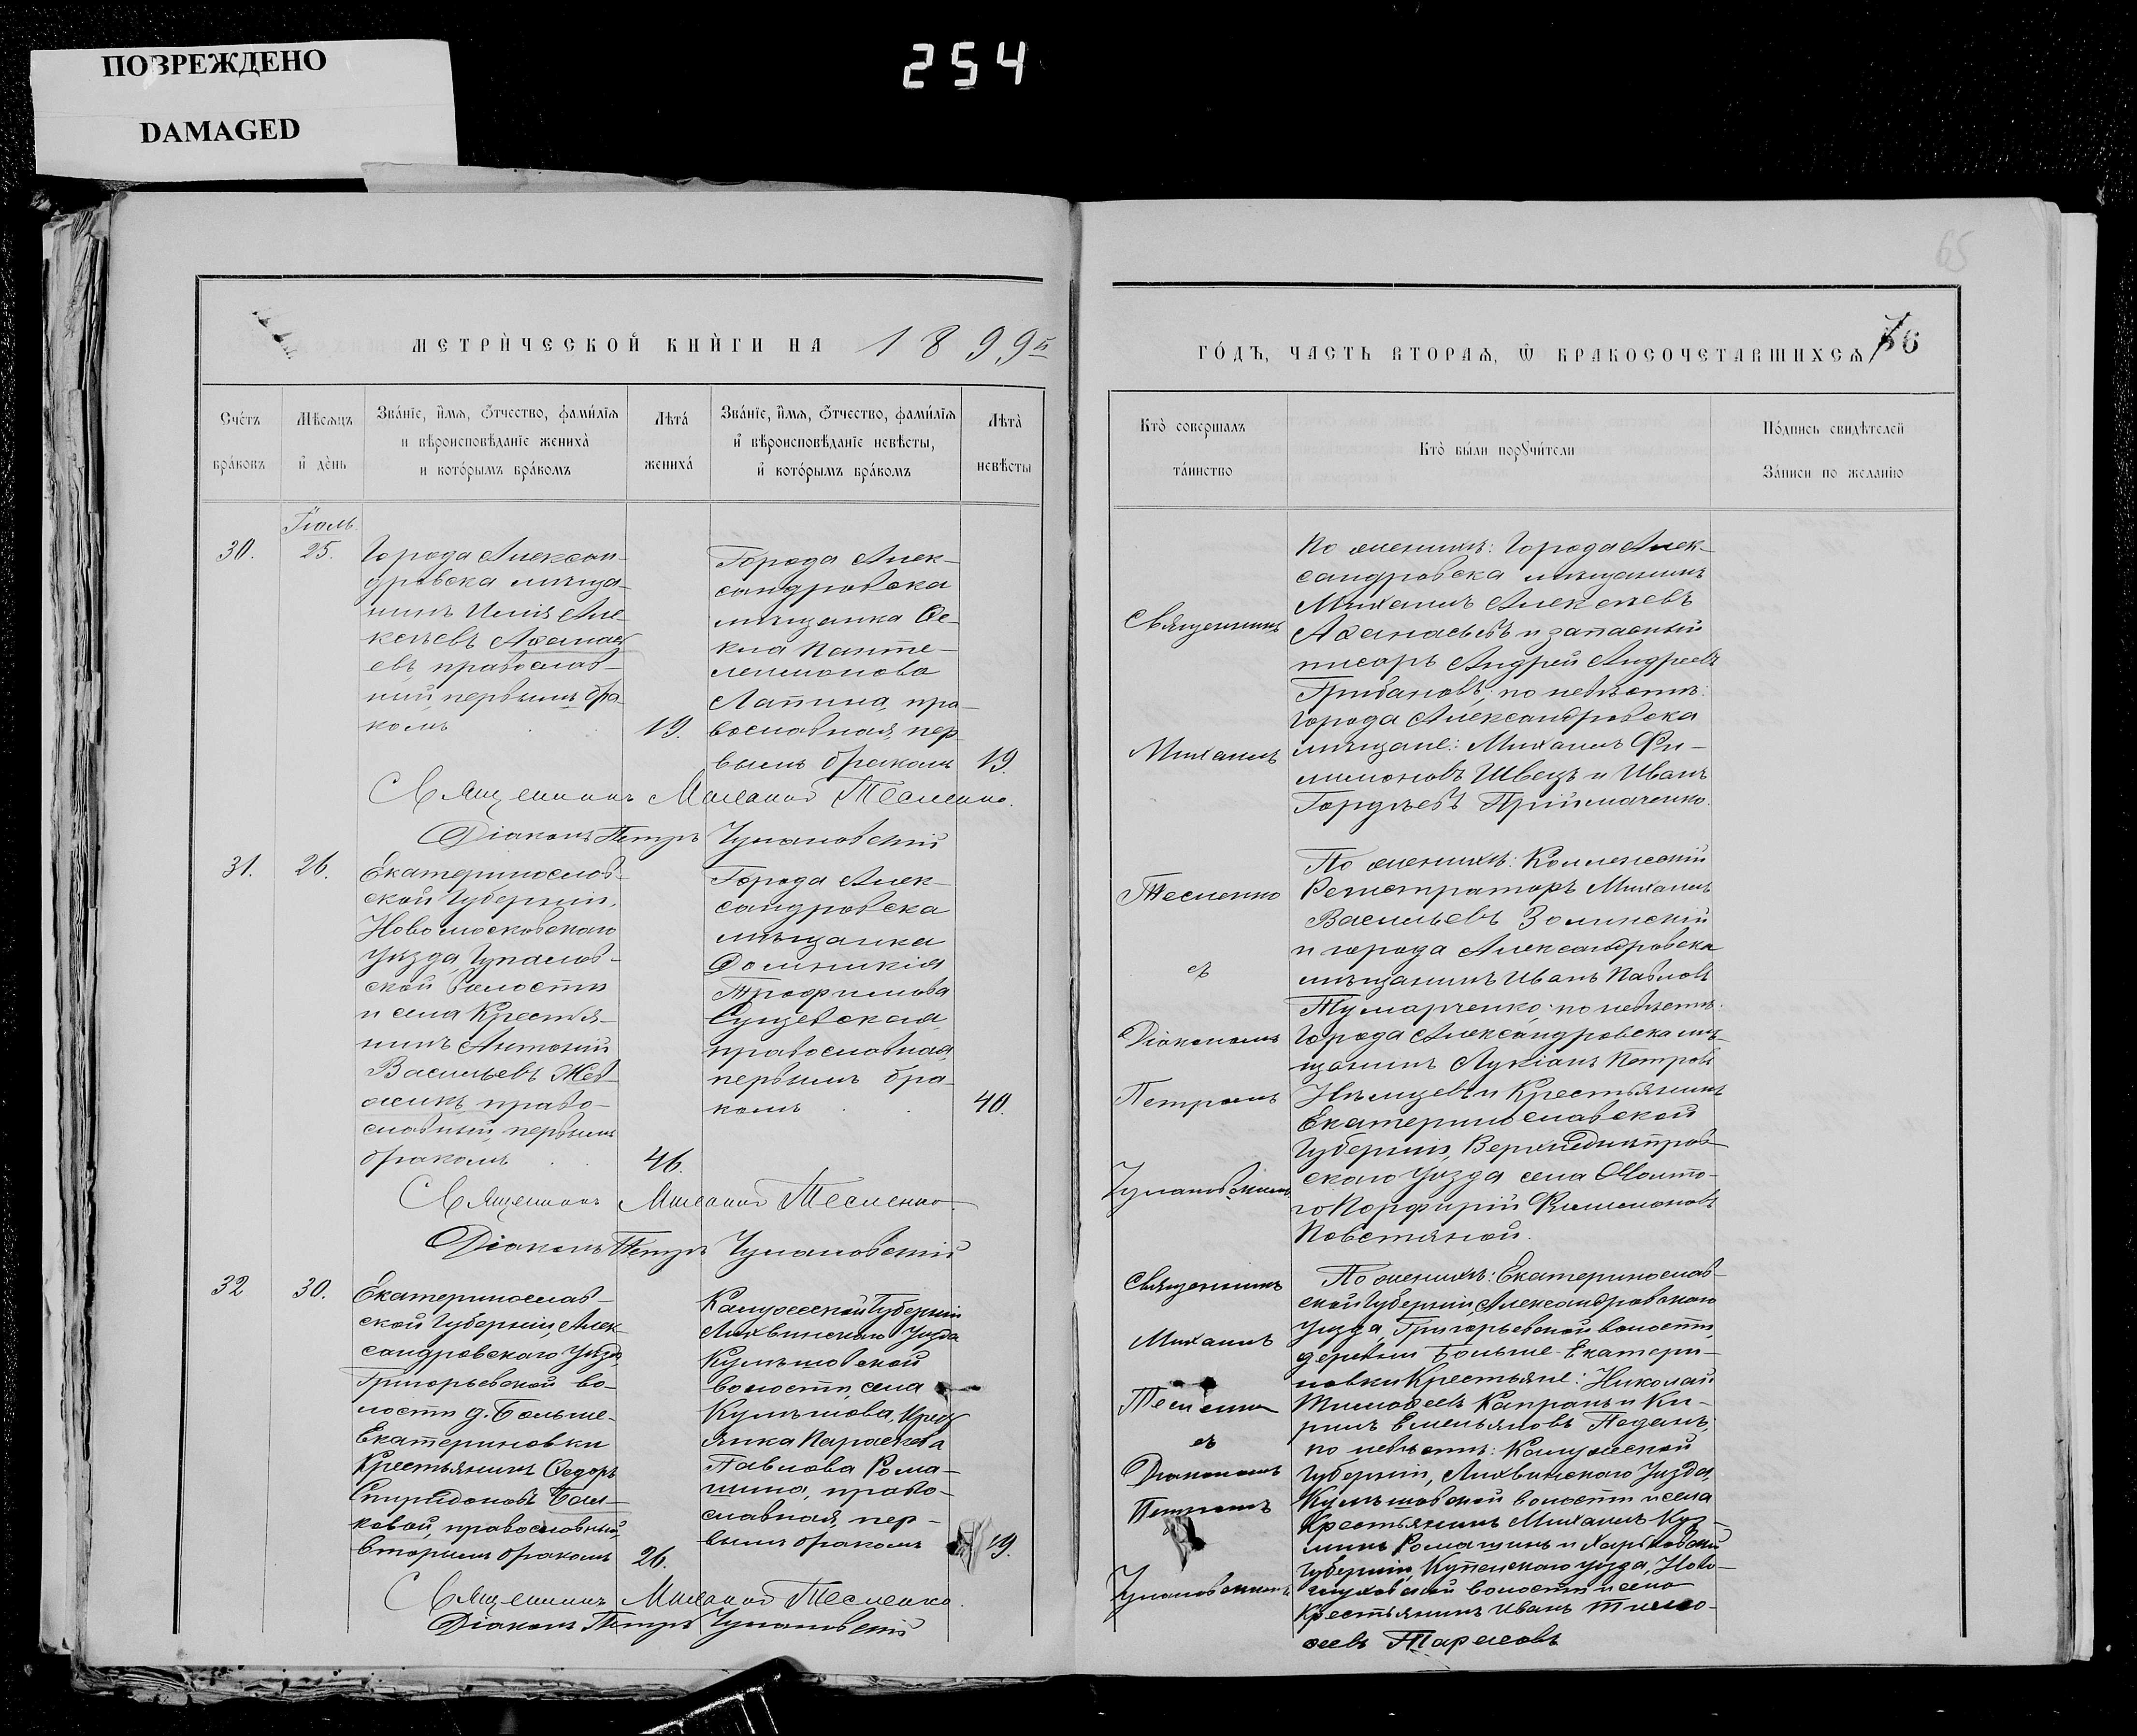 ПОВРЕЖДЕНО
DAMAGED
254
65
МЕТРИЧЕСКОЙ КНИГИ НА 1899й
Счетъ браковъ
Мѣсяцъ и день
Званіе, имя, отчество, фамилія и вѣроисповѣданіе жениха и которымъ бракомъ
Лѣта жениха
Званіе, имя, отчество, фамилія и вѣроисповѣданіе невѣсты, и которымъ бракомъ
Лѣта невѣсты
Іюль
30.
25.
Города Алексан-
дровска мѣща-
нинъ Илія Але-
ксѣевъ Аѳанась
евъ, православ-
ный, первымъ бра-
комъ
19.
Города Алек-
сандровска
мѣщанка Ѳе-
кла Панте-
леимонова
Лапина, пра-
вославная, пер-
вымъ бракомъ
19.
Священникъ Михаилъ Тесленко.
Діаконъ Петръ Чулановскій
31.
26.
Екатеринослав-
ской Губерніи,
Новомосковскаго
Уѣзда, Гупалов-
ской волости
и села Крестья-
нинъ Антоній
Васильевъ Жов-
православный, первымъ
бракомъ
46.
Города Алек-
сандровска
мѣщанка
Домникія
Трофимова
Сущевская,
православная,
первымъ бра-
комъ
40.
Священникъ Михаилъ Тесленко.
Діаконъ Петръ Чулановскій
32
30.
Екатеринослав-
ской Губерніи, Алек-
сандровскаго Уѣзда
Григорьевской во-
лости д. Больше-
Екатериновки
Крестьянинъ Ѳедоръ
Спиридоновъ Бал-
ковой, православный,
вторымъ бракомъ
26.
Калужской Губерніи
Лихвинскаго Уѣзда
Кулешовской
волости, села
Кулешова, Кресть
янка Параскева
Павлова Рома-
шина, право-
славная, пер-
вымъ бракомъ
19.
Священникъ Михаилъ Тесленко.
Діаконъ Петръ Чулановскій
ГОДЪ, ЧАСТЬ ВТОРАЯ, Ѿ БРАКОСОЧЕТАВШИХСЯ
76
Кто совершалъ таинство
Кто были поручители
Подпись свидѣтелей записи по желанію
Священникъ
Михаилъ
Тесленко
съ
Діакономъ
Петромъ
Чулановскимъ
По женихѣ: Города Алек-
сандровска мѣщанинъ
Михаилъ Алексѣевъ
Аѳанасьевъ и запасный
писарь Андрей Андреевъ
Грибановъ; по невѣстѣ:
города Александровска
мѣщане: Михаилъ Фи-
лимоновъ Швецъ и Иванъ
Гордѣевъ Приймаченко.
По женихѣ: Коллежскій
Регистраторъ Михаилъ
Васильевъ Золинскій
и города Александровска
мѣщанинъ Иванъ Павловъ
Тумарченко; по невѣстѣ:
Города Александровска мѣ-
щанинъ Лукіанъ Петровъ
Нѣмцевъ и Крестьянинъ
Екатеринославской
Губерніи, Верхнеднѣпров-
скаго Уѣзда села
Порфирій Филимоновъ
Повстяной.
Священникъ
Михаилъ
Тесленко
съ
Діакономъ
Петромъ
Чулановскимъ
По женихѣ: Екатеринослав-
ской Губерніи, Александровскаго
Уѣзда, Григорьевской волости,
деревни Больше-Екатери-
новки Крестьяне: Николай
Тимоѳеевъ Капранъ и Ки-
рилъ Емельяновъ Педанъ;
по невѣстѣ: Калужской
Губерніи, Лихвинскаго Уѣзда,
Кулешовской волости и села
Крестьянинъ Михаилъ Куз-
минъ Ромашинъ и Харьковской
Губерніи, Купянскаго уѣзда, Ново-
глуховской волости и села
Крестьянинъ Иванъ Тимо-
ѳеевъ Тарасовъ